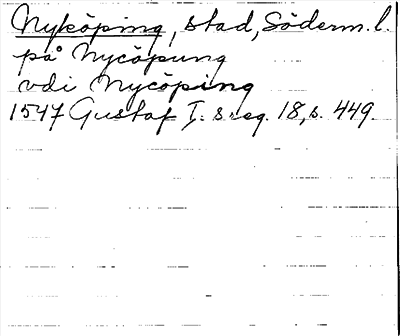 Nyköping, stad, Söderm. l.
på Nycöpung
vdi Nycöping
1547 Gustaf I:s reg. 18, s. 449.